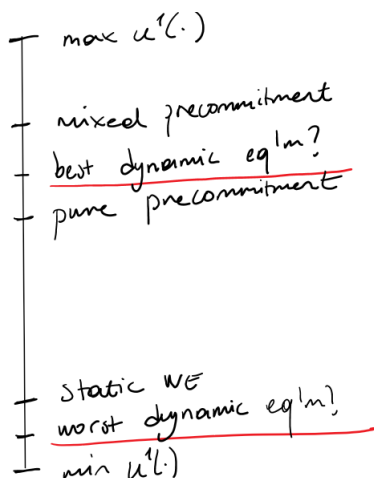 max u¹(.)
mixed precommitment
best dynamic eq'm?
pure precommitment
static NE
worst dynamic eq'm?
min u¹(.)